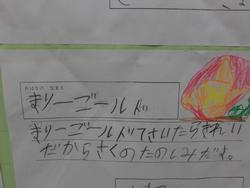 おはなの なまえ
まりーゴールド
まりーゴールドてさいたらきれい
だからさくのたのしみだよ。